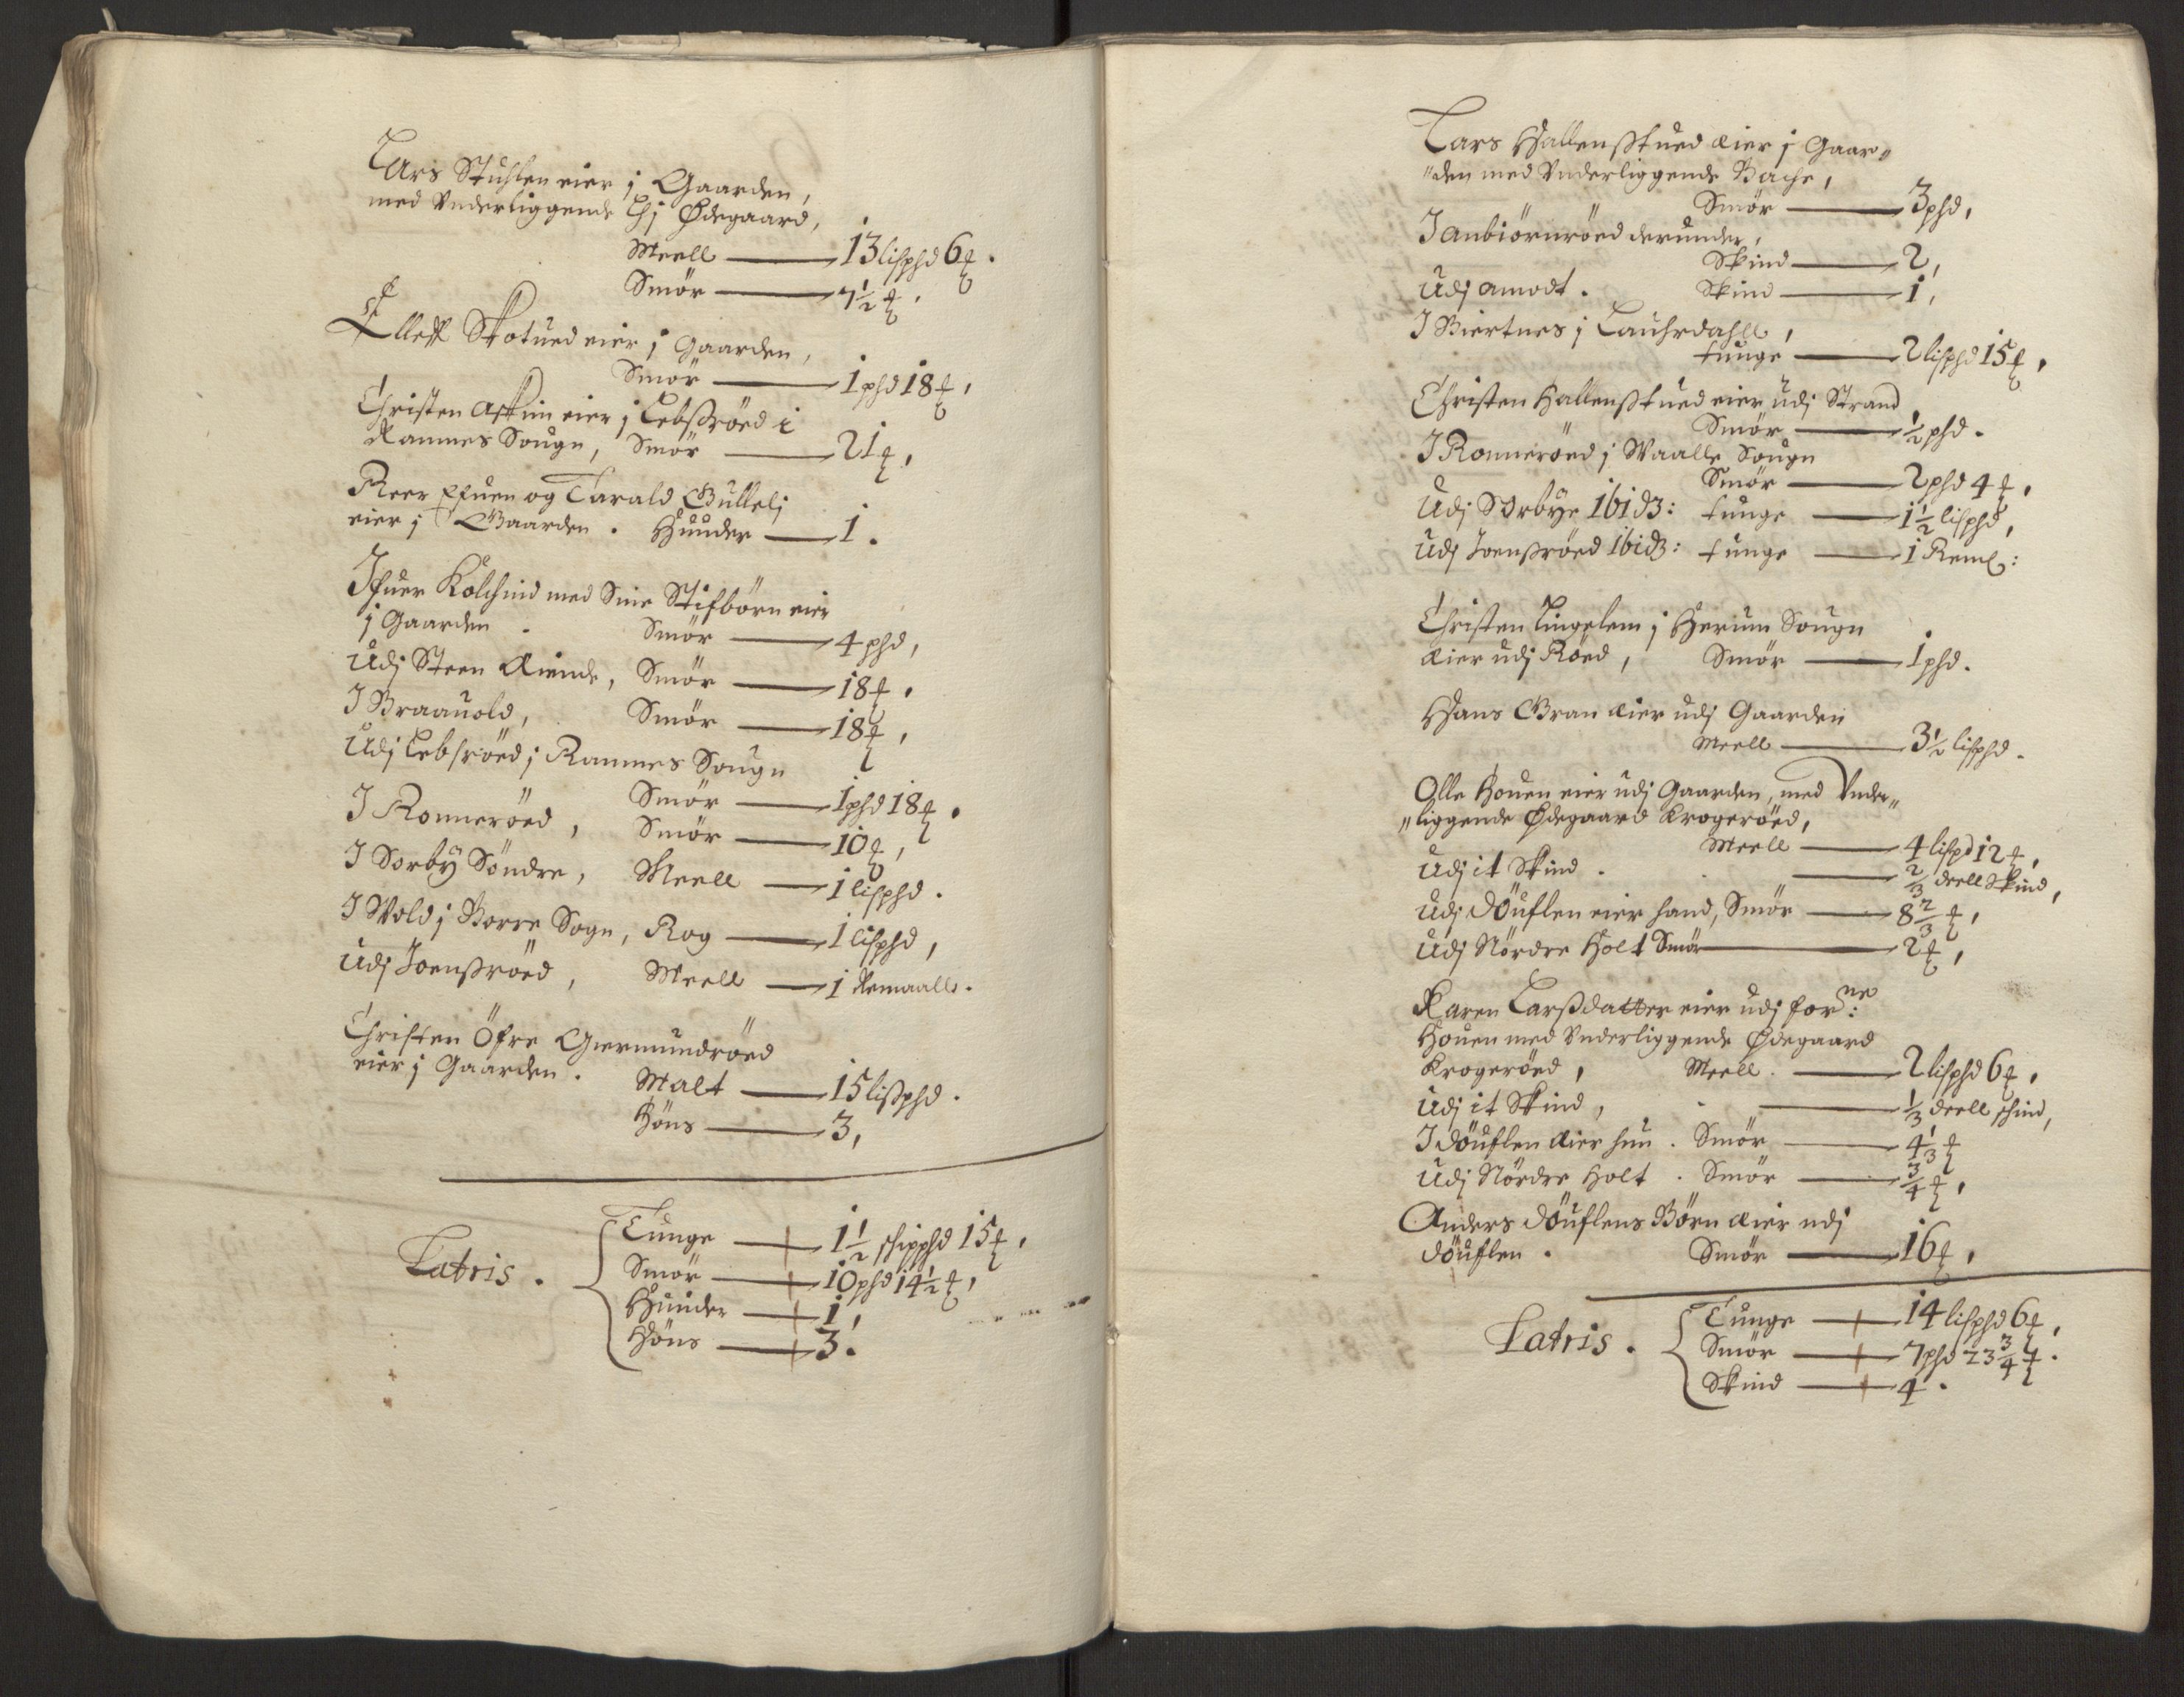 Lars Stuhlen eier j Gaarden,
med Vnderliggende Ødegaard,
Meell — 13 lisphd 6 ℔.
Smör — 7½ ℔.
Elleff Skotued eier j Gaarden,
Smör — 1 phd 18 ℔,
Christen Askim eier j Lebssröed i
Ramnes Sougn, Smör — 21 ℔,
Peer og Tarald Gulleli
eier j Gaarden. Huuder — 1.
Ifuer Kolchind med Sine Stifbörn eier
j Gaarden. Smör — 4 phd,
Udj Steen Aiende, Smör — 18 ℔,
I Braauold, Smör — 18 ℔,
Udj Lebsröed j Ramnes Sougn
Smör — 1 phd 18 ℔.
I Ronneröed, Smör — 10 ℔,
I Sorbÿ Söndre, Meell — 1 lisphd.
I Wold j Borre Sogn, Rog — 1 lisphd,
Udj Joenßröed, Meell — 1 Remaall.
Christen Öfre Giermundröed
eier j Gaarden. Malt — 15 lißphd.
Höns — 3,
Latris.
Tunge — 1½ schipphd 15 ℔,
Smör — 10 phd 14½ ℔,
Huuder — 1,
Höns — 3.
Lars Hallenßtued Aier j Gaar„
„den med Vnderliggende Bache,
Smör — 3 phd,
I Anbiörnröed derunder,
Skind — 2,
Udj Amodt. Skind — 1,
I Biertnes j Lauhrdahll,
tunge — 2 lisphd 15 ℔,
Christen Hallenßtued eier udj Strand
Smör — ½ phd.
I Ronneröed j Waalle Sougn
Smör — 2 phd 4 ℔,
Udj Sörbye ibid3: tunge — 1½ lisphd,
Udj Joenßröed ibid3: tunge — 1 Reml:
Christen Lingelem j Herum Sougn
Aier udj Röed, Smör — 1 phd.
Hans Gran Aier udj Gaarden
Meell — 3½ lisphd.
Olle Houen eier udj Gaarden, med Vnder„
„liggende Ødegaard Krogeröed,
Meell — 4 lispd 12 ℔,
Udj it Skind. — ⅔ deell Skind,
Udj Döuflen eier hand, Smör — 8⅔ ℔,
Udj Nördre Holt Smör — 2 ℔,
Karen Larßdatter eier udj forne:
Houen med Vnderliggende Ødegaard
Krogeröed, Meell. — 2 lisphd 6 ℔,
Udj it Skind, — ⅓ deell schind,
I Döuflen Aier hun. Smör — 4⅓ ℔
Udj Nördre Holt. Smör — ¾ ℔,
Anders Döuflens Börn Aier udj
Döuflen. Smör — 16 ℔,
Latris.
Tunge — 14 lisphd 6 ℔,
Smör — 7 phd 23¾ ℔.
Skind — 4.